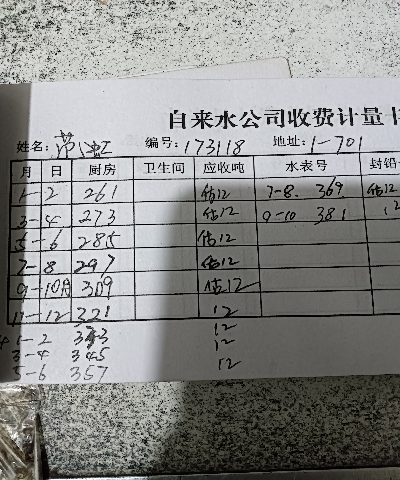 自来水公司收费计量卡
姓名: 编号: 173118 地址: 1-701
月 日 厨房 卫生间 应收吨 水表号 封铅
1-2 261 估12 7-8. 369 估12
3-4 273 估12 9-10 381 12
5-6 285 估12
7-8 297 估12
9-10月 309 估12
11-12 321 12
1-2 333 12
3-4 345 12
5-6 357 12